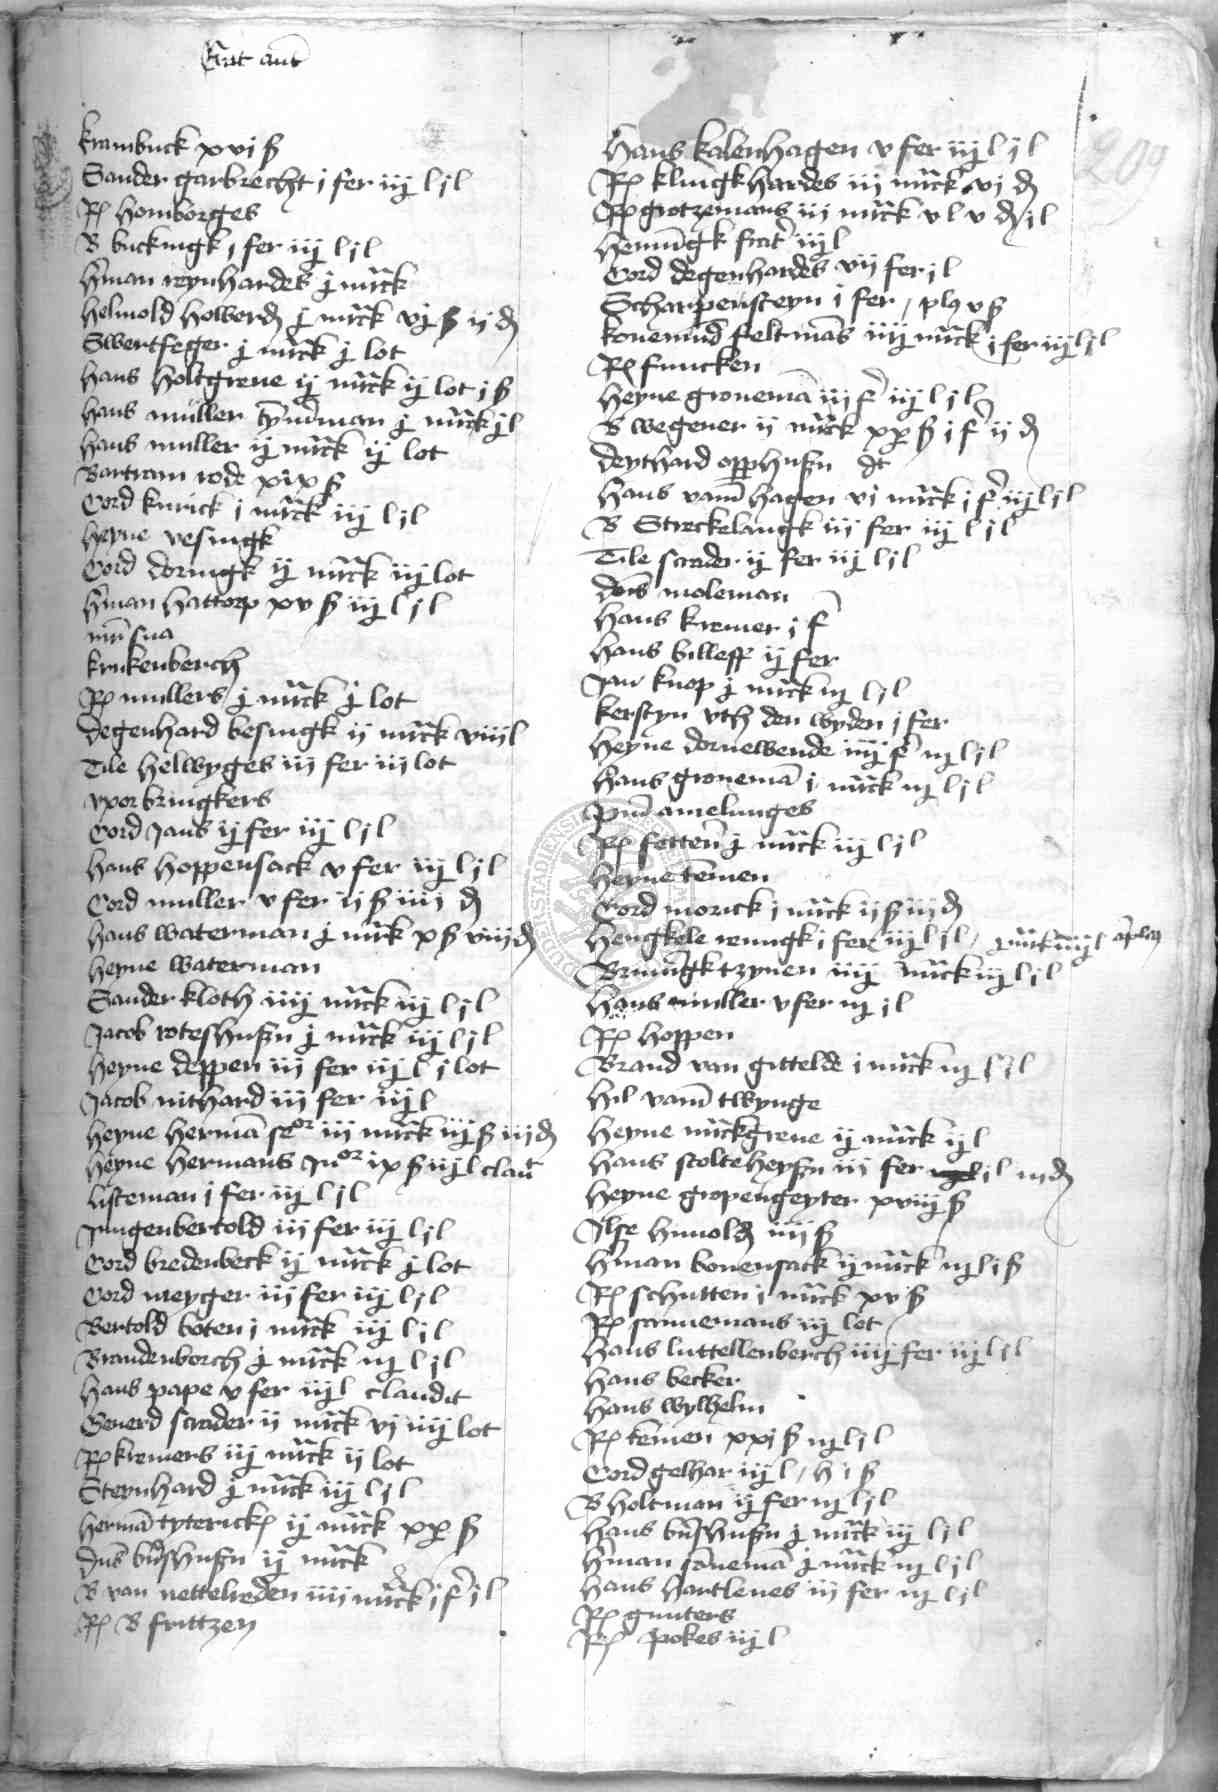 krambuck xvi ß
Sander garbrecht j fer iij l j l
Rel homborges
B buckingk j fer iij l j l
Hman reynhardes j mrck
Helmold holwerd j mrck vj ß ij d
Swertfeger j mrck j lot
Hans holtgreve ij mrck ij lot j ß
Hans muller tymerman j mrck j l
Hans muller ij mrck ij lot
Bartram rode xix ß
Cord knrick j mrck iij l j l
Heyne vesingk
Cord doringk ij mrck iij lot
Hman hattorp xv ß iij l j l
krukenberch
Rel mullers j mrck j lot
Degenhard besingk ij mrck viij l
Tile helwyges iij fer iij lot
vxor bringkers
Cord Jans ij fer iij l j l
Hans hoppensack v fer iij l j l
Cord muller v fer ij ß iiij d
Hans waterman j mrck x ß viij d
Heyne waterman
Sander kloth iiij mrck iij l j l
Jacob roteshusen j mrck iij l j l
Heyne deppen iij fer iij l j lot
Jacob nithard iij fer iij l
Heyne herman seor iij mrck iij ß iij d
Heyne hermans Juor ix ß iij l claud
Listeman j fer iij l j l
Jungenbertold iij fer iij l j l
Cord bredenbeck ij mrck j lot
Cord meyger iij fer iij l j l
Bertold boten j mrck iij l j l
Brandenborch j mrck iij l j l
Hans pape v fer iij l claudit
Geuerd scrader ij mrck vj iiij lot
Rel kremers iij mrck ij lot
Steynhard j mrck iij l j l
Herman tyterick ij mrck xx ß
B van nettelreden iiij mrck j f j l
Rel B frittzen
Hans kalenhagen v fer iij l j l
Rel klingkhardes iij mrck vj d
Rel grotzemans iij mrck v l v d j l
Henningk frater iij l
Cord degenhardes vij fer j l
Scharpensteyn j fer / plus v ß
konemund feltmans iiij mrck j fer iij l j l
Rel funcken
Heyne gronema iij f iij l j l
B wegener ij mrck xx ß j f ij d
Deythard opphusen dt
Hans vam hagen vj mrck j f iij l j l
B Streckelangk iij fer iij l j l
Tile scrader ij fer iij l j l
moleman
Hans kremer j f
Hans billeff ij fer
Jan knop j mrck iij l j l
kerstyn vth den wyden j fer
Heyne dornewende iiij f iij l j l
Hans gronema j mrck iij l j l
amelunges
Rel fetten j mrck iij l j l
Heyne temen
Cord morick j mrck ij ß iij d
Hengkele renngk j fer iij l j l /
Brunningk tzynen iiij mrck iij l j l
Hans muller v fer iij j l
Rel hoppen
Brand van gittelde j mrck iij l j l
Hil vam twynge
Heyne mrckgreve ij mrck ij l
Hans stolteheysen iij fer j l iij d
Heyne gropengeyter xviij ß
Ilse hunold iiij ß
Hman bonensack ij mrck iij l j ß
Rel schutten j mrck xv ß
Rel scannemans iij lot
Hans luttellenberch iiij fer iij l j l
Hans becker
Hans wylhelm
Rel temen xxj ß iij l j l
Cord gelhar iij l / h j ß
B holtman ij fer iij l j l
Hans bushusen j mrck iij l j l
Hman janeman j mrck iij l j l
Hans hartleues iij fer iij l j l
Rel gunters
Rel pokes iij l
209